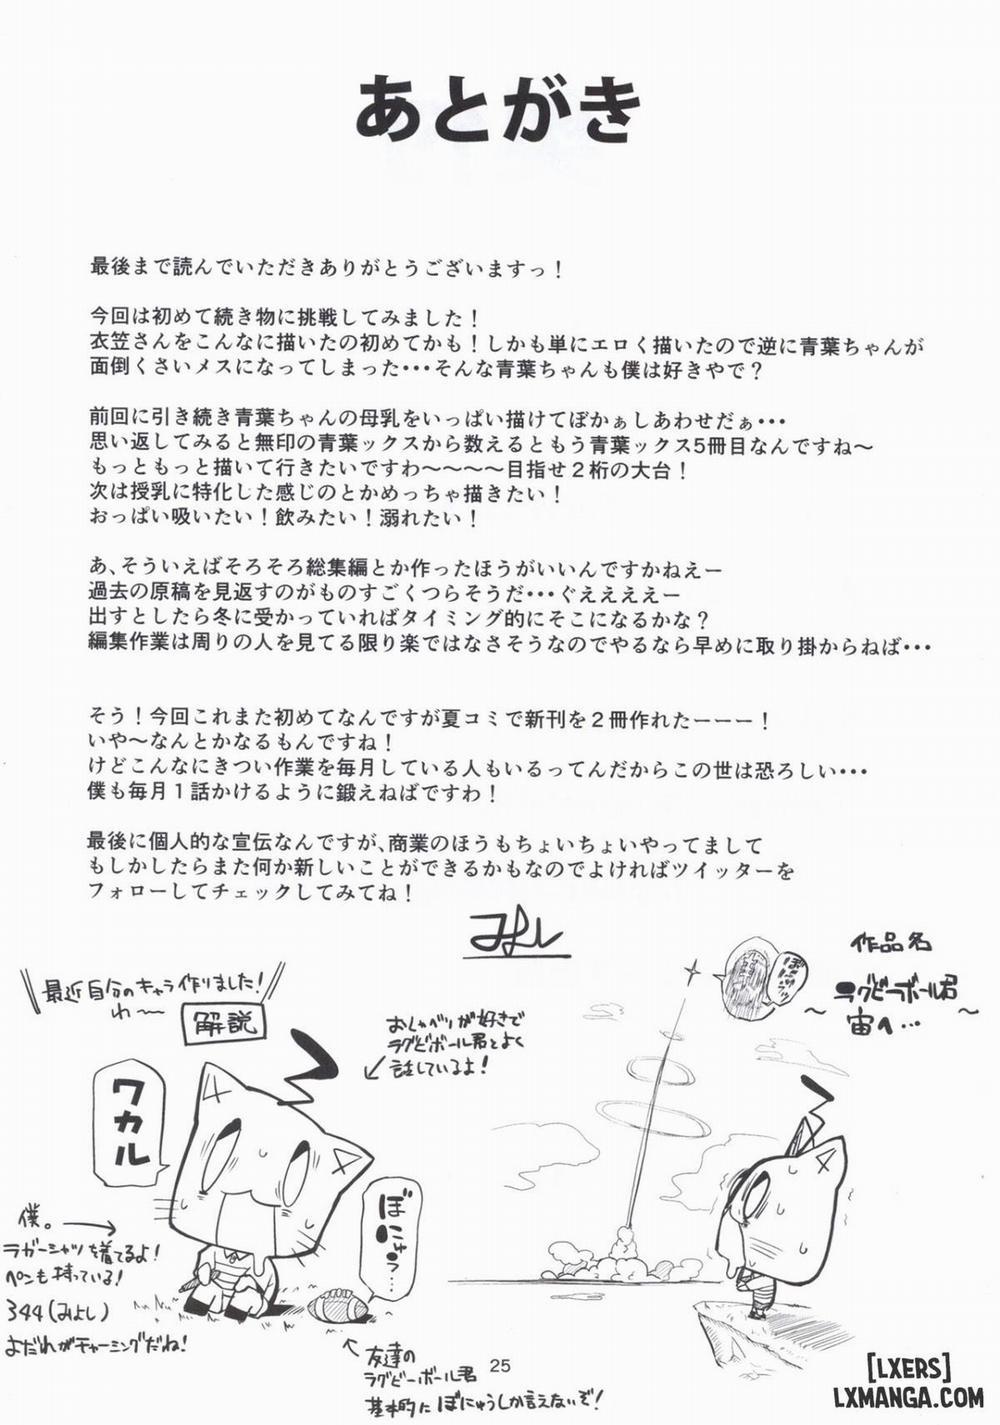 あとがき
最後まで読んでいただきありがとうございますっ！
今回は初めて続き物に挑戦してみました！
衣笠さんをこんなに描いたの初めてかも！しかも単にエロく描いたので逆に青葉ちゃんが
面倒くさいメスになってしまった･･･そんな青葉ちゃんも僕は好きやで？
前回に引き続き青葉ちゃんの母乳をいっぱい描けてぼかぁしあわせだぁ･･･
思い返してみると無印の青葉ックスから数えるともう青葉ックス5冊目なんですね～
もっともっと描いて行きたいですわ～～～～目指せ２桁の大台！
次は授乳に特化した感じのとかめっちゃ描きたい！
おっぱい吸いたい！飲みたい！溺れたい！
あ、そういえばそろそろ総集編とか作ったほうがいいんですかねえー
過去の原稿を見返すのがものすごくつらそうだ･･･ぐええええー
出すとしたら冬に受かっていればタイミング的にそこになるかな？
編集作業は周りの人を見てる限り楽ではなさそうなのでやるなら早めに取り掛からねば･･･
そう！今回これまた初めてなんですが夏コミで新刊を２冊作れたーーー！
いや～なんとかなるもんですね！
けどこんなにきつい作業を毎月している人もいるってんだからこの世は恐ろしい･･･
僕も毎月１話かけるように鍛えねばですわ！
最後に個人的な宣伝なんですが、商業のほうもちょいちょいやってまして
もしかしたらまた何か新しいことができるかもなのでよければツイッターを
フォローしてチェックしてみてね！
みよし
最近自分のキャラ作りました！
わ〜
解説
ワカル
おしゃべりが好きで
ラグビボール君とよく
話しているよ！
ぼにゅう?…
僕。
ラガーシャツを着てるよ！
ペンも持っている！
344(みよし)
よだれがチャーミングだね！
友達の
ラグビーボール君
基本的にぼにゅうしか言えないぞ！
作品名
～ラグビーボール君
宙へ…～
25
[LXERS]
LXMANGA.COM